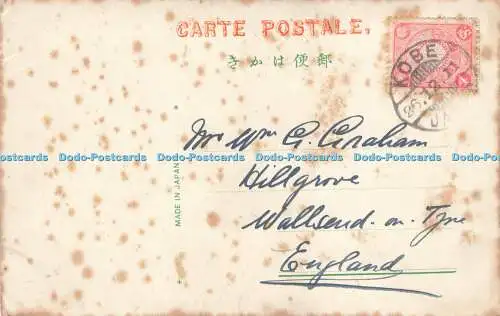 CARTE POSTALE.
きかは便郵
KOBE
JA
Mr Wm G. Graham
Dodo-Postcards Dodo-Postcards Dodo-Postcards Dodo-Postcards Dodo-Postcards
Hillgrove
Wallsend on Tyne
England
MADE IN JAPAN